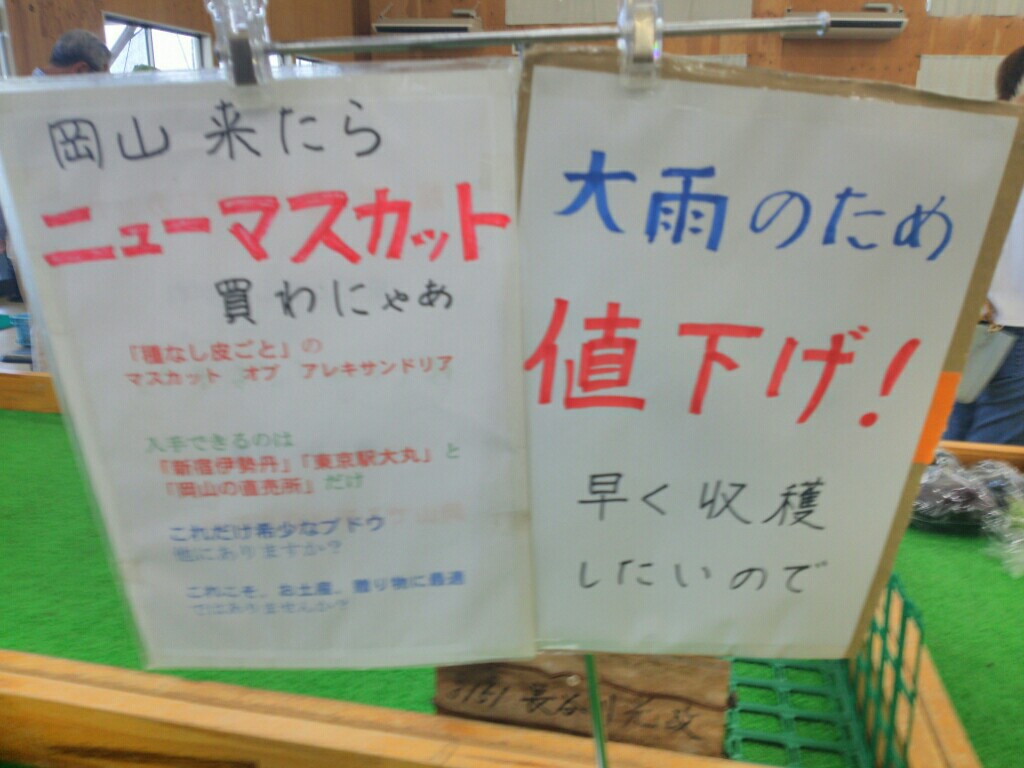 岡山 来たら
ニューマスカット
買わにゃあ
「種なし皮ごと」の
マスカット オブ アレキサンドリア
入手できるのは
「新宿伊勢丹」「東京駅大丸」と
「岡山の直売所」だけ
これだけ希少なブドウ
他にありますか?
これこそ、お土産、贈り物に最適
ではありませんか?
大雨のため
値下げ!
早く収穫
したいので